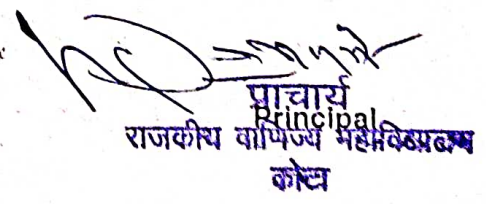 प्राचार्य
Principal
राजकीय वाणिज्य महाविद्यालय
कोटा